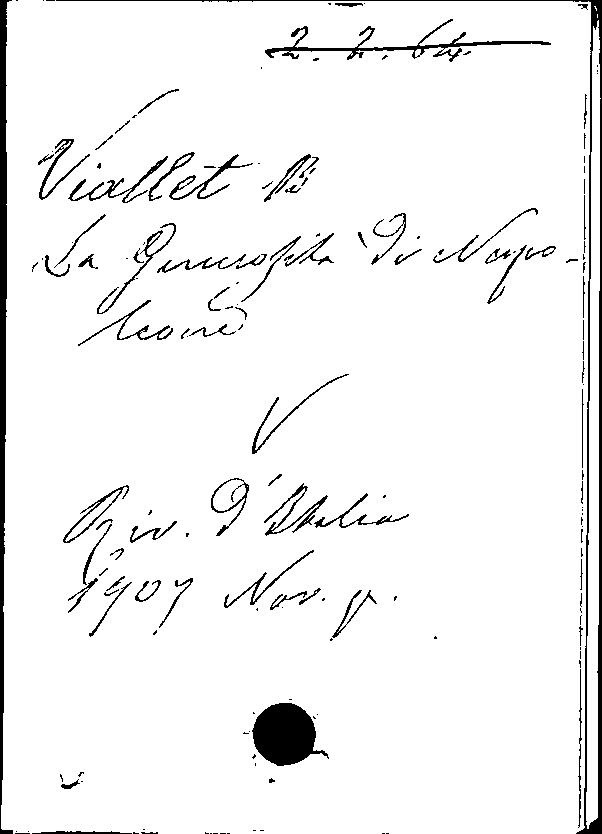 2. 2. 64
Viallet B
La Generosita di Napo-
leone
Riv. d'Italia
1907 Nov. p.